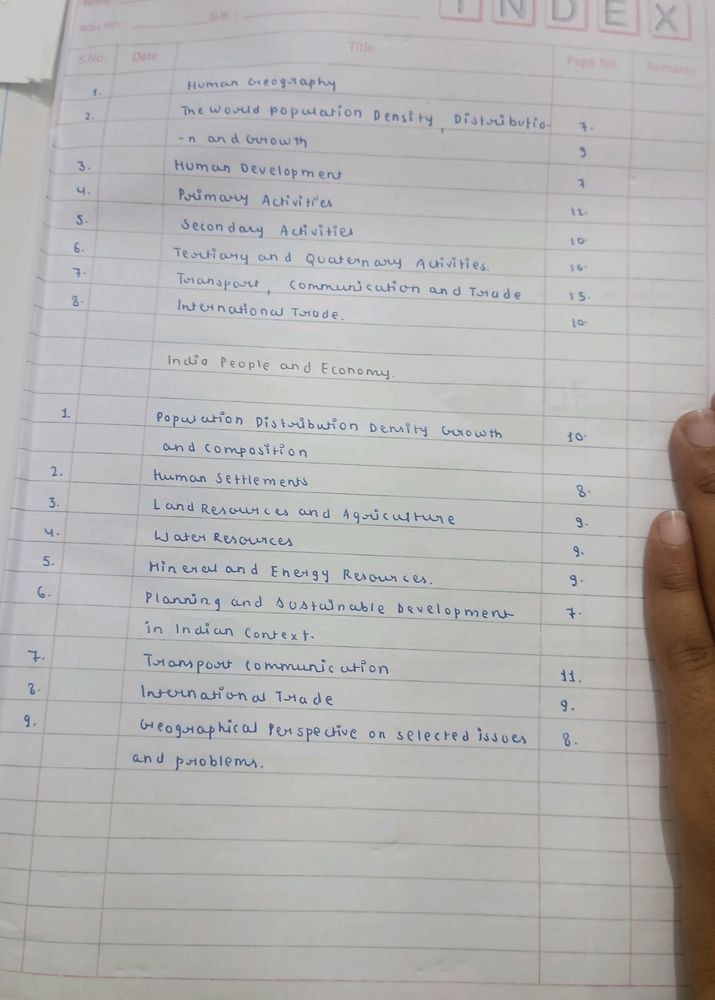 INDEX
ROLL NO. : SUB :
S.No. Date Title Page No. Remarks
1. Human Geography
2. The World Population Density, Distributio- 7.
-n and Growth 9
3. Human Development 7
4. Primary Activities 12.
5. Secondary Activities 10.
6. Tertiary and Quaternary Activities. 16.
7. Transport, Communication and Trade 15.
8. International Trade. 10.
India People and Economy.
1. Population Distribution Density Growth 10.
and composition
2. Human Settlements 8.
3. Land Resources and Agriculture 9.
4. Water Resources 9.
5. Mineral and Energy Resources. 9.
6. Planning and Sustainable Development 7.
in Indian Context.
7. Transport communication 11.
8. International Trade 9.
9. Geographical Perspective on selected issues 8.
and problems.